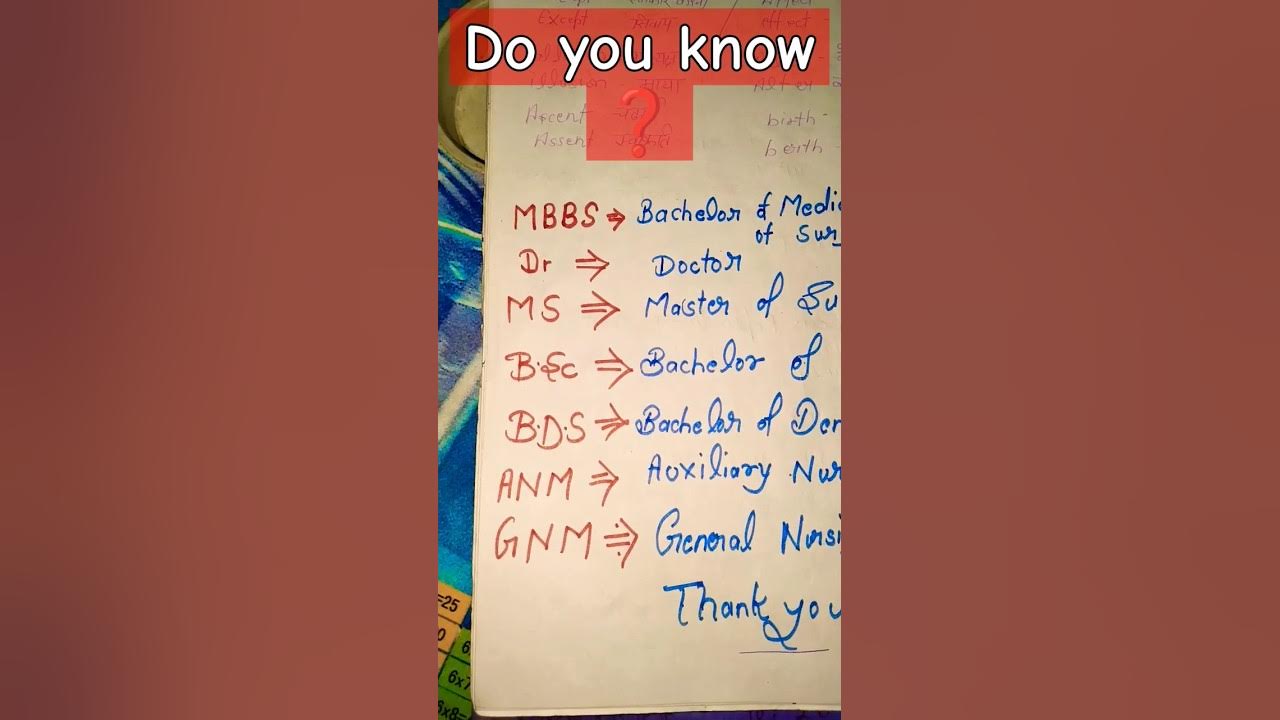 Do you know
?
Except
effect -
Accent
birth -
Assent
berth -
MBBS ⇒ Bachelor of Medic
of Sur
Dr ⇒ Doctor
MS ⇒ Master of Su
B.Sc ⇒ Bachelor of
B.D.S ⇒ Bachelor of Den
ANM ⇒ Auxiliary Nur
GNM ⇒ General Nursi
Thank you
=25
6x7
6x8=